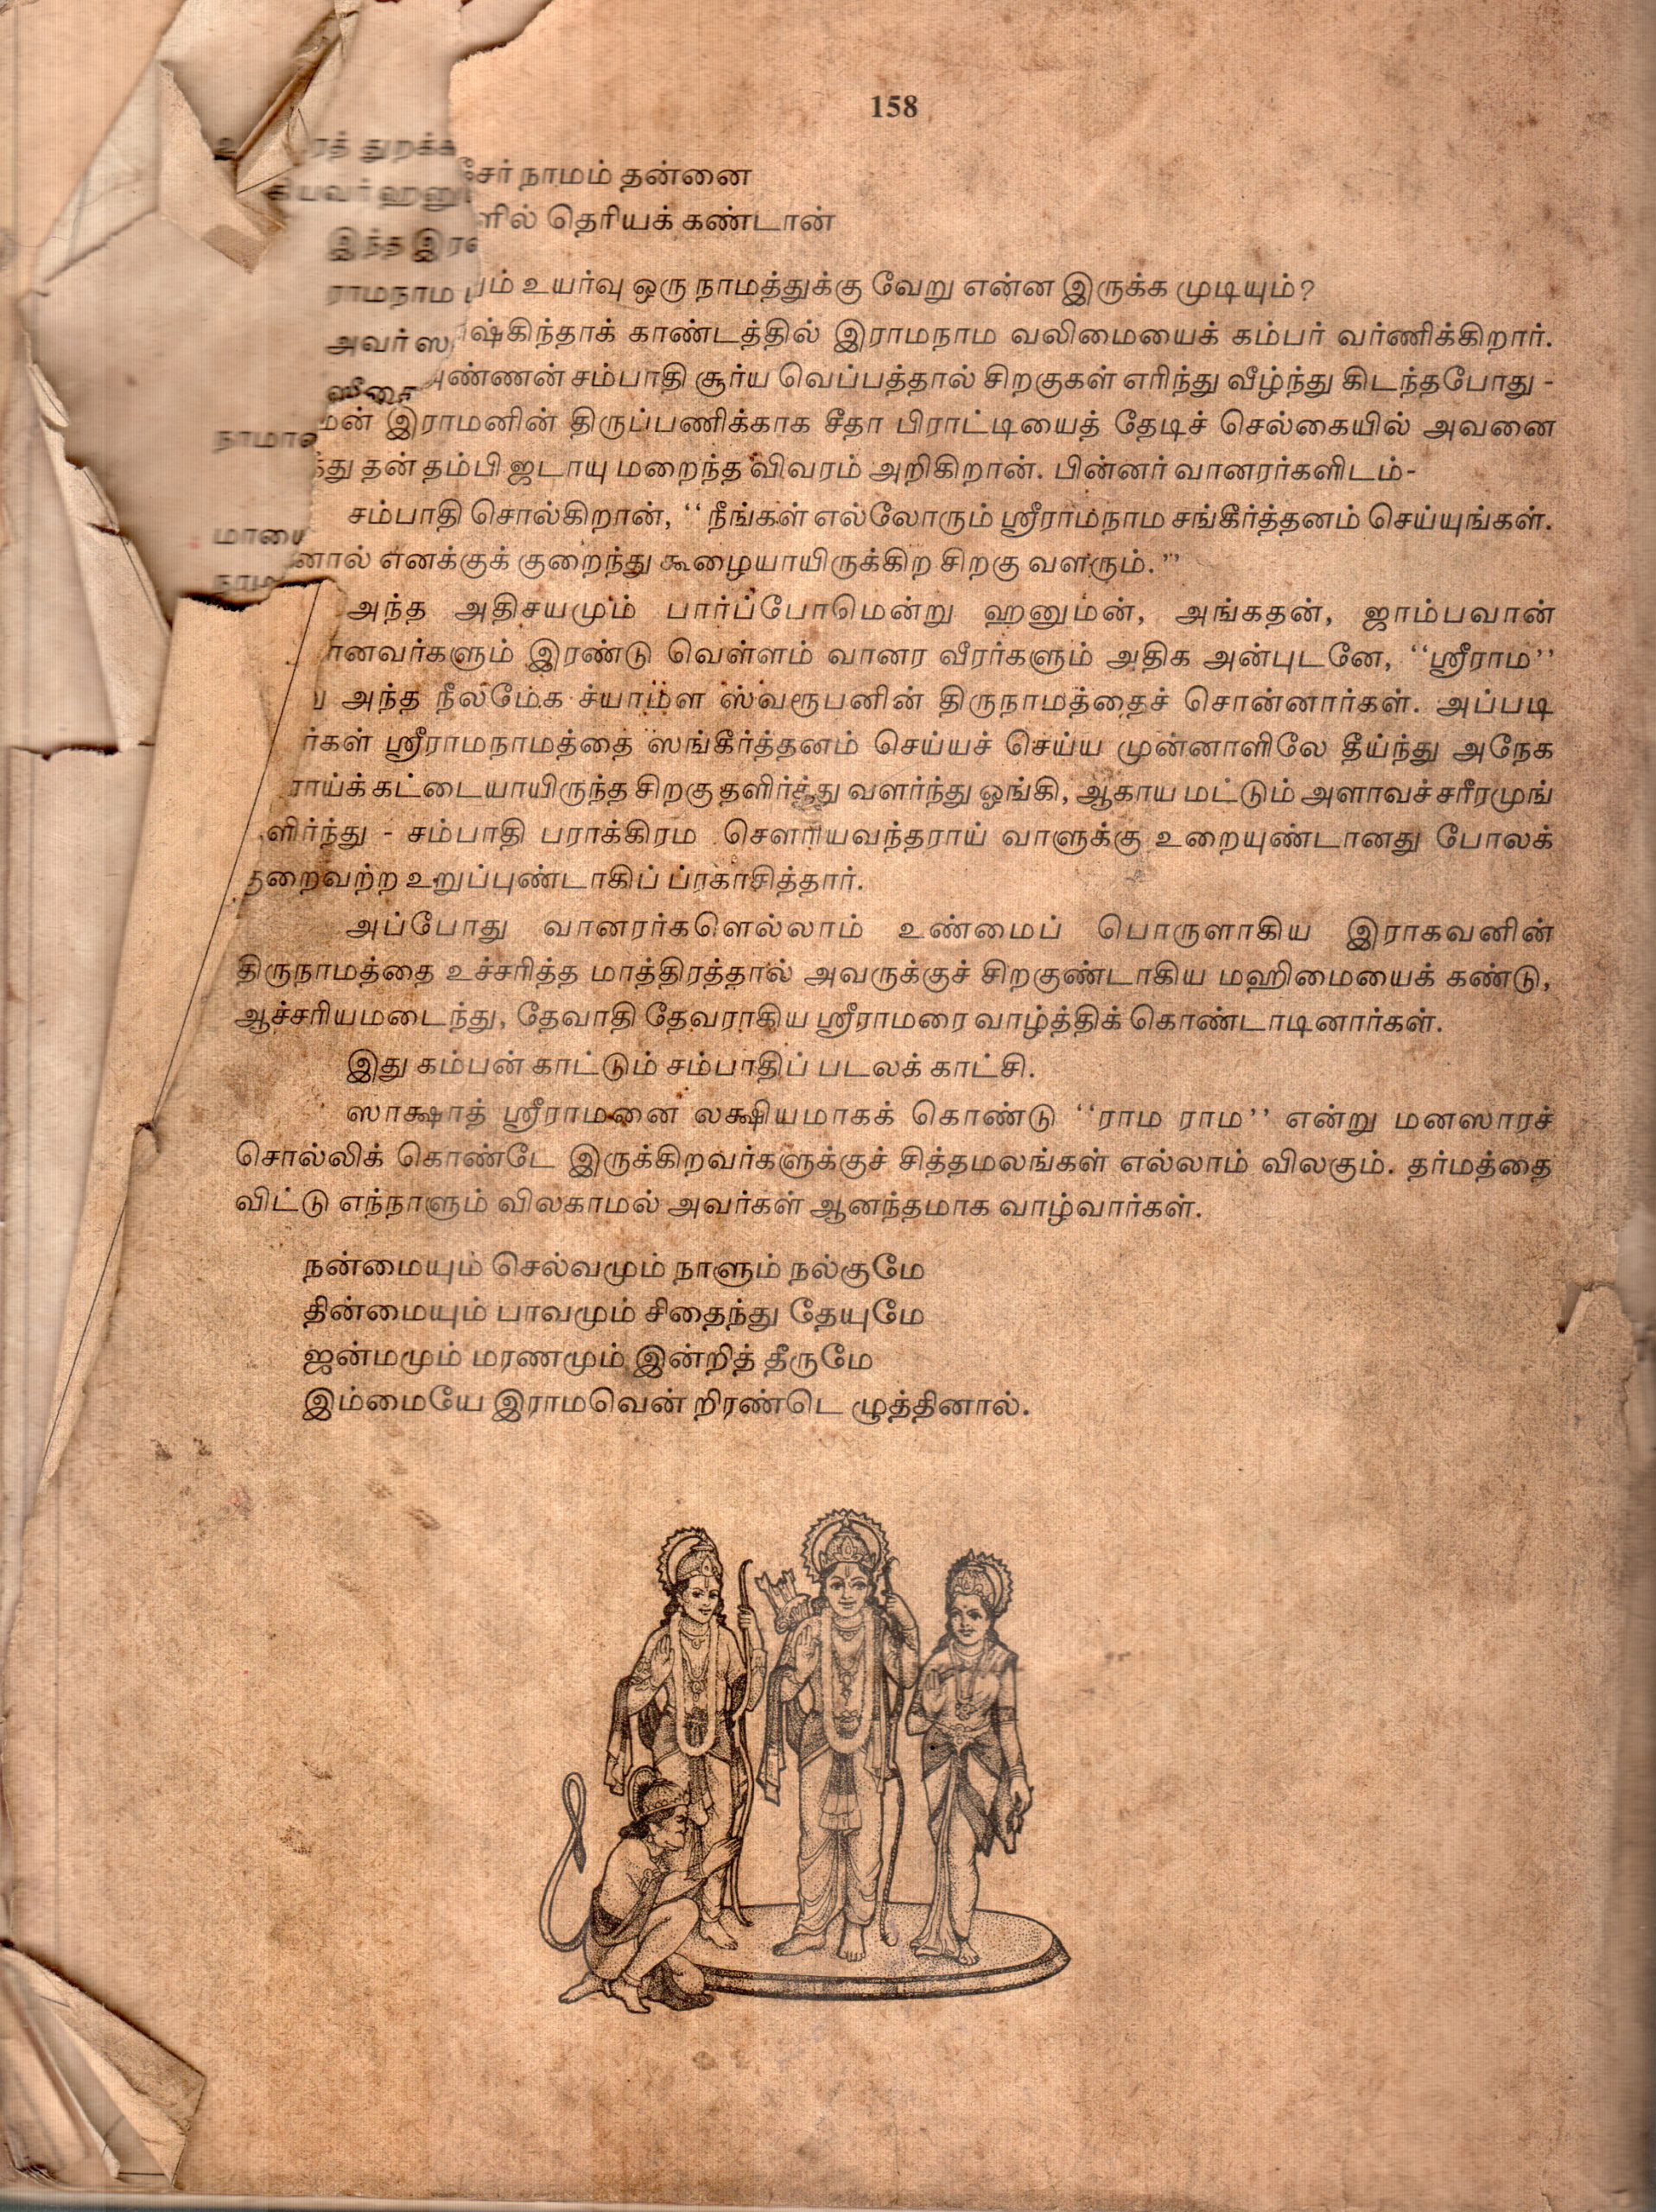 158
நாமம் தன்னை
தெரியக் கண்டான்
உயர்வு ஒரு நாமத்துக்கு வேறு என்ன இருக்க முடியும்?
காண்டத்தில் இராமநாம வலிமையைக் கம்பர் வர்ணிக்கிறார்.
அண்ணன் சம்பாதி சூர்ய வெப்பத்தால் சிறகுகள் எரிந்து வீழ்ந்து கிடந்தபோது -
இராமனின் திருப்பணிக்காக சீதா பிராட்டியைத் தேடிச் செல்கையில் அவனை
தன் தம்பி ஜடாயு மறைந்த விவரம் அறிகிறான். பின்னர் வானரர்களிடம்-
சம்பாதி சொல்கிறான், ‘‘நீங்கள் எல்லோரும் ஸ்ரீராமநாம சங்கீர்த்தனம் செய்யுங்கள்.
எனக்குக் குறைந்து கூழையாயிருக்கிற சிறகு வளரும்.’’
அந்த அதிசயமும் பார்ப்போமென்று ஹனுமன், அங்கதன், ஜாம்பவான்
இரண்டு வெள்ளம் வானர வீரர்களும் அதிக அன்புடனே, ‘‘ஸ்ரீராம’’
அந்த நீலமேக ச்யாமள ஸ்வரூபனின் திருநாமத்தைச் சொன்னார்கள். அப்படி
ஸ்ரீராமநாமத்தை ஸங்கீர்த்தனம் செய்யச் செய்ய முன்னாளிலே தீய்ந்து அநேக
சிறகு தளிர்த்து வளர்ந்து ஓங்கி, ஆகாய மட்டும் அளாவச் சரீரமுங்
- சம்பாதி பராக்கிரம சௌரியவந்தராய் வாளுக்கு உறையுண்டானது போலக்
குறைவற்ற உறுப்புண்டாகிப் ப்ரகாசித்தார்.
அப்போது வானரர்களெல்லாம் உண்மைப் பொருளாகிய இராகவனின்
திருநாமத்தை உச்சரித்த மாத்திரத்தால் அவருக்குச் சிறகுண்டாகிய மஹிமையைக் கண்டு,
ஆச்சரியமடைந்து, தேவாதி தேவராகிய ஸ்ரீராமரை வாழ்த்திக் கொண்டாடினார்கள்.
இது கம்பன் காட்டும் சம்பாதிப் படலக் காட்சி.
ஸாக்ஷாத் ஸ்ரீராமனை லக்ஷியமாகக் கொண்டு ‘‘ராம ராம’’ என்று மனஸாரச்
சொல்லிக் கொண்டே இருக்கிறவர்களுக்குச் சித்தமலங்கள் எல்லாம் விலகும். தர்மத்தை
விட்டு எந்நாளும் விலகாமல் அவர்கள் ஆனந்தமாக வாழ்வார்கள்.
நன்மையும் செல்வமும் நாளும் நல்குமே
தின்மையும் பாவமும் சிதைந்து தேயுமே
ஜன்மமும் மரணமும் இன்றித் தீருமே
இம்மையே இராமவென் றிரண்டெ ழுத்தினால்.